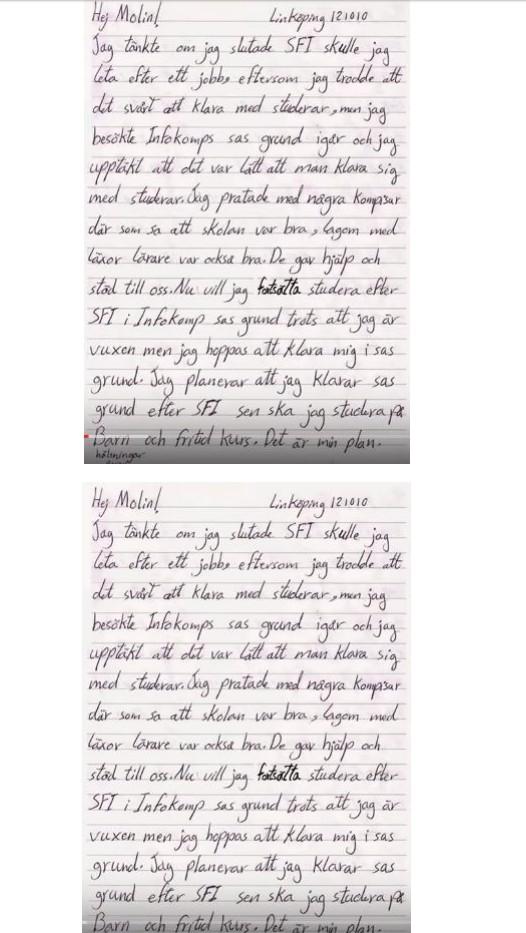 Hej Molin! Linköping 121010
Jag tänkte om jag slutade SFI skulle jag
leta efter ett jobb, eftersom jag trodde att
det svårt att klara med studerar, men jag
besökte Infokomps sas grund igår och jag
upptäkt att det var lätt att man klara sig
med studerar. Jag pratade med några kompsur
där som sa att skolan var bra, lagom med
läxor lärare var också bra. De gav hjälp och
stöd till oss. Nu vill jag fotsätta studera efter
SFI i Infokomp sas grund trots att jag är
vuxen men jag hoppas att klara mig i sas
grund. Jag planerar att jag klarar sas
grund efter SFI sen ska jag studera på
Barn och fritid kurs. Det är min plan.
hälsningar
Hej Molin! Linköping 121010
Jag tänkte om jag slutade SFI skulle jag
leta efter ett jobb, eftersom jag trodde att
det svårt att klara med studerar, men jag
besökte Infokomps sas grund igår och jag
upptäkt att det var lätt att man klara sig
med studerar. Jag pratade med några kompsur
där som sa att skolan var bra, lagom med
läxor lärare var också bra. De gav hjälp och
stöd till oss. Nu vill jag fotsätta studera efter
SFI i Infokomp sas grund trots att jag är
vuxen men jag hoppas att klara mig i sas
grund. Jag planerar att jag klarar sas
grund efter SFI sen ska jag studera på
Barn och fritid kurs. Det är min plan.